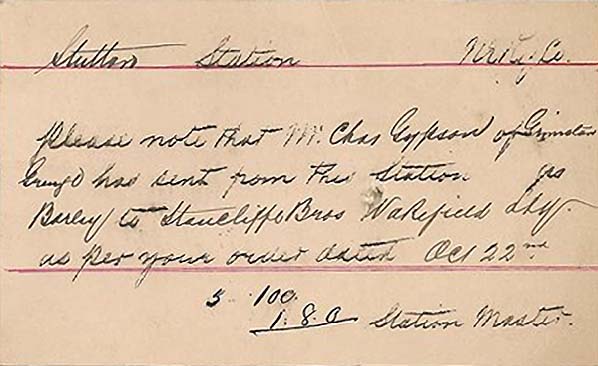 Stutton Station N.E. Ry. Co.
Please note that Mr. Chas Gypson of Grimston
Grange has sent from this Station qrs
Barley to Stancliffe Bros Wakefield
as per your order dated Oct 22nd
5 . 100.
1. 8. 0 Station Master.